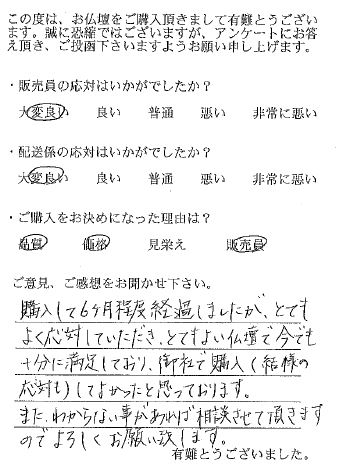 この度は、お仏壇をご購入頂きまして有難とうござい
ます。誠に恐縮ではございますが、アンケートにお答
え頂き、ご投函下さいますようお願い申し上げます。
・販売員の応対はいかがでしたか?
大変良い 良い 普通 悪い 非常に悪い
・配送係の応対はいかがでしたか?
大変良い 良い 普通 悪い 非常に悪い
・ご購入をお決めになった理由は?
品質 価格 見栄え 販売員
ご意見、ご感想をお聞かせ下さい。
購入して6ヶ月程度経過しましたが、とても
よく応対していただき、とてもよい仏壇で今でも
十分に満足しており、御社で購入(結様の
応対も)してよかったと思っております。
また、わからない事があれば相談させて頂きます
のでよろしくお願い致します。
有難とうございました。